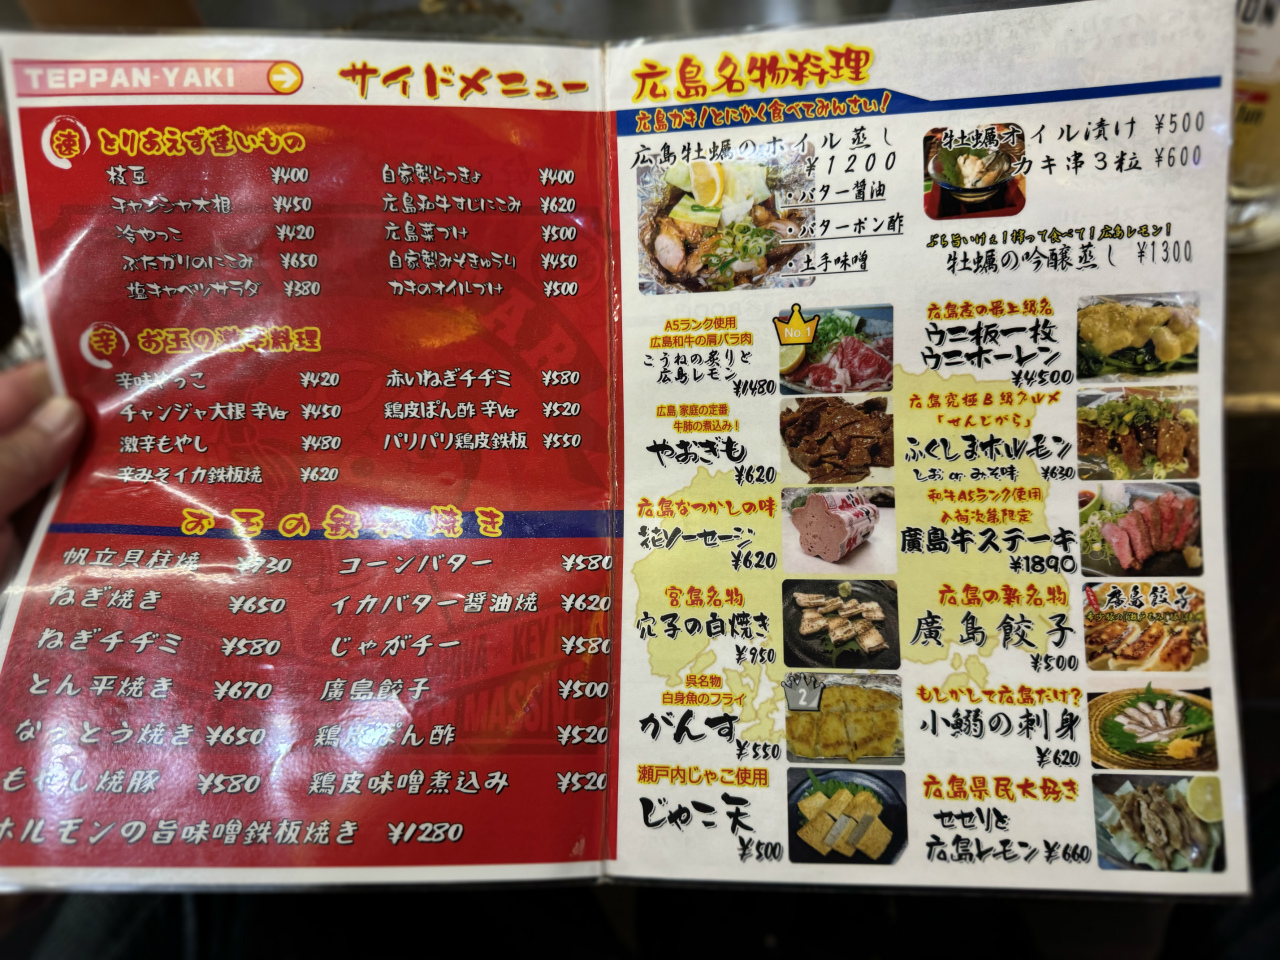 TEPPAN-YAKI
サイドメニュー
速 とりあえず速いもの
枝豆 ¥400
チャンジャ大根 ¥450
冷やっこ ¥420
ぶたガリのにこみ ¥650
塩キャベツサラダ ¥380
自家製らっきょ ¥400
広島和牛すじにこみ ¥620
広島菜づけ ¥500
自家製みそきゅうり ¥450
カキのオイルづけ ¥500
辛 お玉の激辛料理
辛味やっこ ¥420
チャンジャ大根 辛Ver ¥450
激辛もやし ¥480
辛みそイカ鉄板焼 ¥620
赤いねぎチヂミ ¥580
鶏皮ぽん酢 辛Ver ¥520
パリパリ鶏皮鉄板 ¥550
お玉の鉄板焼き
帆立貝柱焼 ¥930
ねぎ焼き ¥650
ねぎチヂミ ¥580
とん平焼き ¥670
なっとう焼き ¥650
もやし焼豚 ¥580
ホルモンの旨味噌鉄板焼き ¥1280
コーンバター ¥580
イカバター醤油焼 ¥620
じゃがチー ¥580
廣島餃子 ¥500
鶏皮ぽん酢 ¥520
鶏皮味噌煮込み ¥520
広島名物料理
広島カキ!とにかく食べてみんさい!
広島牡蠣のホイル蒸し
¥1200
・バター醤油
・バターポン酢
・土手味噌
牡蠣オイル漬け ¥500
カキ串3粒 ¥600
ぶち旨いけぇ!搾って食べて!広島レモン!
牡蠣の吟醸蒸し ¥1300
A5ランク使用
広島和牛の肩バラ肉
こうねの炙りと
広島レモン
¥1480
No.1
広島 家庭の定番
牛肺の煮込み!
やおぎも
¥620
広島なつかしの味
花ソーセージ
¥620
宮島名物
穴子の白焼き
¥950
呉名物
白身魚のフライ
がんす
¥550
2
瀬戸内じゃこ使用
じゃこ天
¥500
広島産の最上級名
ウニ板一枚
ウニホーレン
¥4500
広島究極B級グルメ
「せんじがら」
ふくしまホルモン
しお or みそ味 ¥630
和牛A5ランク使用
入荷次第限定
廣島牛ステーキ
¥1890
広島の新名物
廣島餃子
¥500
廣島餃子
もしかして広島だけ?
小鰯の刺身
¥620
広島県民大好き
セセリと
広島レモン ¥660